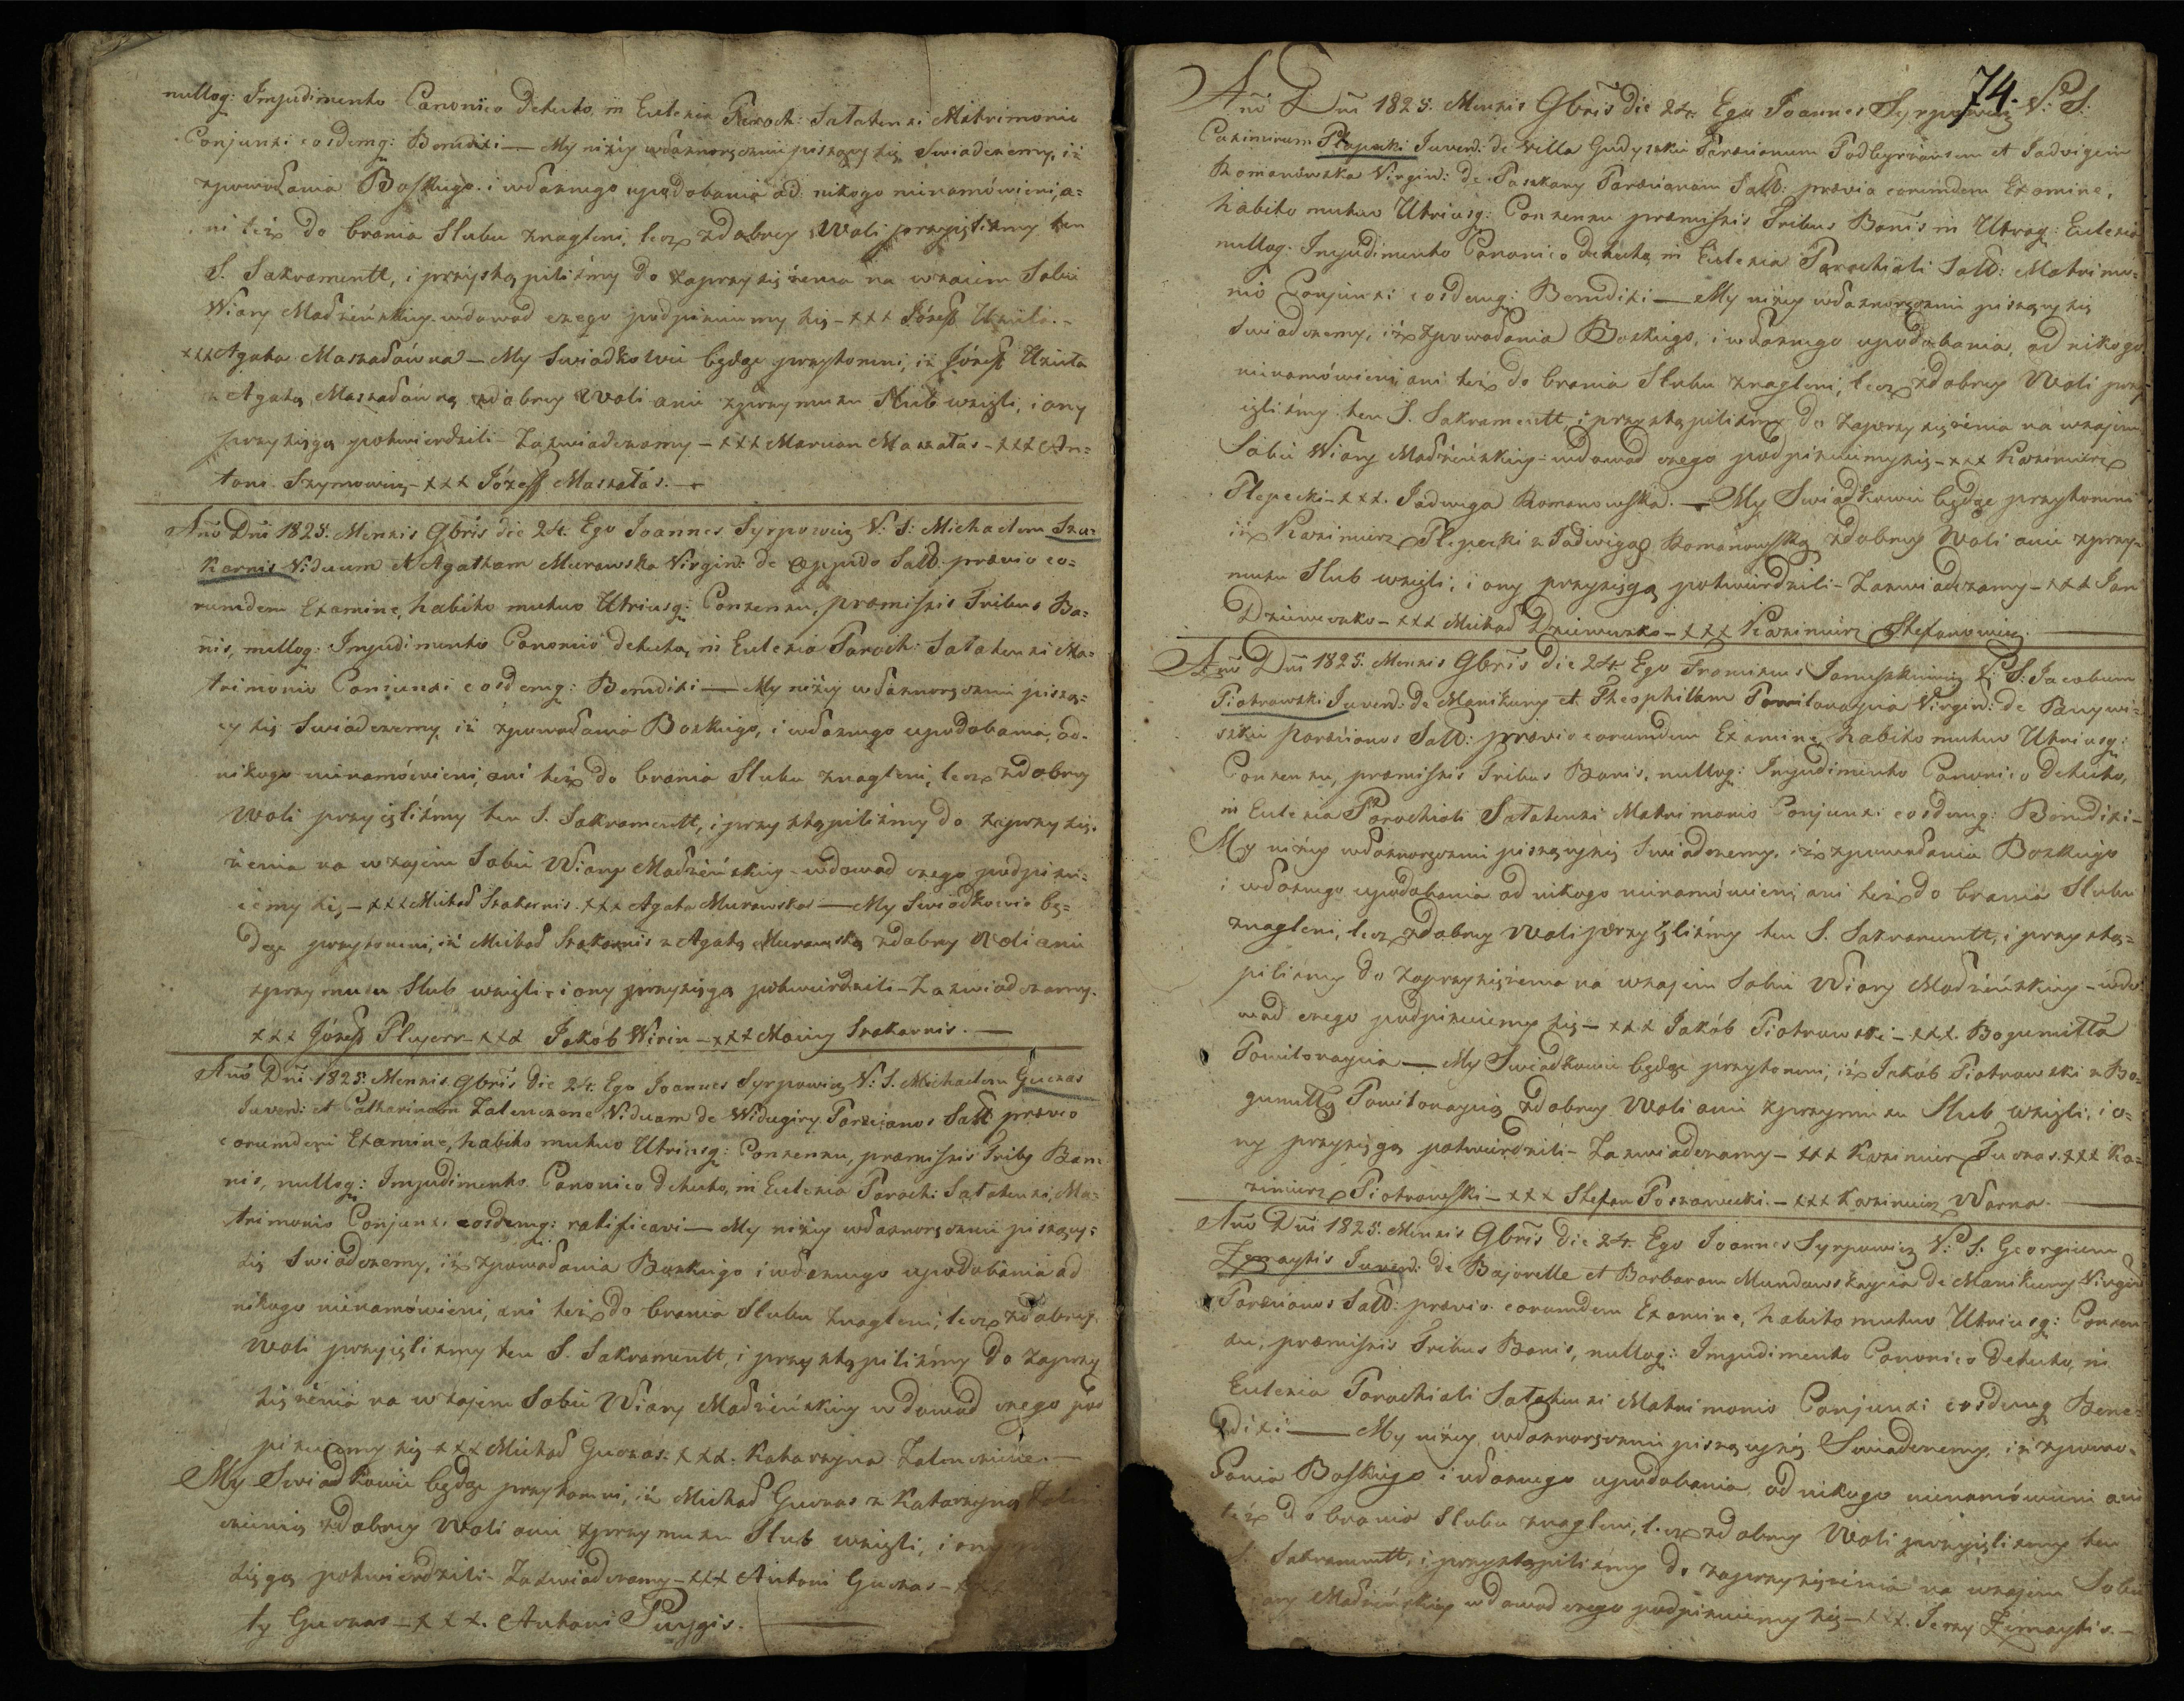 nulloq: Impedimento Canonico detecto, in Eclesia Paroch: Sałatensi Matrimonio
Conjunxi eosdemq: Benedixi — My niżey własnoręcznie piszący się Swiadczemy, iż
zpowołania Boskiego i własnego upodobania od nikogo nienamówieni, a=
ni też do brania Slubu znagleni, lecz zdobrey Woli przyięliźmy ten
S. Sakramentt, i przystąpiliźmy do zaprzysiężenia na wzaiem Sobie
Wiary Małżeńskiey wdowod czego podpisuiemy się – xxx Józeff Uzieła. –
xxx Agata Maszałówna – My Swiadkowie będąc przytomni, iż Józeff Uzieła
z Agatą Maszałówną zdobrey Woli anie zprzymusu Slub wzięli, i ony
przysięgą potwierdzili – Zaswiadczamy – xxx Marcian Maszałas – xxx An=
toni Szymowicz – xxx Józeff Maszałas. —
Año Dñi 1825. Mensis 9bris die 24. Ego Joannes Syrpowicz V: S: Michaelem Sza=
karnis Viduum et Agatham Murawska Virgin: de Oppido Sałł. prævio eo=
rumdem Examine, habito mutuo Utriusq: Consensu, præmissis Tribus Ba=
nis, nulloq: Impedimento Canonico detecto, in Eclesia Paroch: Sałatensi Ma=
trimonio Coniunxi eosdemq: Benedixi — My niżey własnoręcznie pisza=
cy się Swiadczemy, iż zpowołania Boskiego, i własnego upodobania, od
nikogo nienamówieni, ani też do brania Slubu znagleni, lecz zdobrey
Woli przyięliźmy ten S. Sakramentt, i przystąpiliźmy do zaprzysię=
żenia na wzajem Sobie Wiary Małżeńskiey – wdowod czego podpisu=
iemy się – xxx Michał Szakarnis. xxx Agata Murawska — My Swiadkowie bę=
dąc przytomni, iż Michał Szakarnis z Agatą Murawską zdobrey Woli anie
zprzymusu Slub wzięli, i ony przysięgą potwierdzili – Zaswiadczamy.
xxx Józeff Pleyerr – xxx Jakób Wirin – xxx Maciey Szakarnis. —
Año Dñi 1825. Mensis 9bris die 24. Ego Joannes Syrpowicz V: S. Michaelem Guczas
Iuven: et Catharinam Zalenczone Viduam de Widugiry Parœcianos Sałł prævio
eorumdem Examine, habito mutuo Utriusq: Consensu, præmissis Tribq Ban=
nis, nulloq: Impedimento Canonico detecto, in Eclesia Paroch: Sałatensi, Ma=
trimonio Conjunxi eosdemq: ratificavi — My niżey własnoręcznie piszący=
się Swiadczemy, iż zpowołania Boskiego i własnego upodobania od
nikogo nienamówieni, ani też do brania Slubu znagleni, lecz zdobrey
Woli przyięliźmy ten S. Sakramentt, i przystąpiliźmy do zaprzy
siężenia na wzajem Sobie Wiary Małżeńskiey w dowod czego pod
pisuiemy się xxx Michał Guczas. xxx. Katarzyna Zalenczicie. —
My Swiadkowie będąc przytomni, iż Michał Guczas z Katarzyną
zdobrey Woli anie zprzymusu Slub wzięli, i ony
sięgą potwierdzili – Zaswiadczamy – xxx Antoni Guczas – xxx
ty Guczas – xxx. Antoni Puygis.
74.
Año Dñi 1825. Mensis 9bris die 24. Ego Joannes Syrpowicz V: S.
Casimirum Płepecki Iuven: de Villa Gudyszki Parœcianum Podbyrżansem et Iadvigem
Romanowska Virgin: de Paszkany Parœcianam Sałł: prævio eorumdem Examine,
habito mutuo Utriusq: Consensu præmissis Tribus Banis in Utraq: Eclesia
nulloq. Impedimento Canonico detecto, in Eclesia Parochiali Sałł: Matrimo=
nio Conjunxi eosdemq: Benedixi — My niżey własnoręcznie piszący się
Swiadczemy, iż zpowołania Boskiego, i własnego upodobania, od nikogo
nienamówieni, ani też do brania Slubu znagleni, lecz zdobrey Woli przy=
ięliźmy ten S. Sakramentt, i przystąpiliźmy do zaprzysiężenia na wzajem
Sobie Wiary Małżeńskiey – wdowod czego podpisuiemy się – xxx Kazimierz
Płepecki – xxx. Jadwiga Romanowska. — My Swiadkowie będąc przytomni
iż Kazimierz Płepecki z Jadwigą Romanowską zdobrey Woli anie zprzy=
musu Slub wzięli, i ony przysięgą potwierdzili – Zaswiadczamy – xxx Jan
Dziewuszko – xxx Michał Dziewuszko – xxx Kazimierz Stefanowicz.
Año Dñi 1825. Mensis 9bris die 24. Ego Franciscus Januszkiewicz V: S: Jacobum
Piotrowski Iuven: de Manikuny et Theophillam Pomilonaycia Virgin: de Bugwi=
szki Parœcianos Sałł: prævio eorumdem Examine, habito mutuo Utriusq:
Consensu, præmissis Tribus Banis, nulloq: Impedimento Canonico detecto,
in Eclesia Parochiali Sałatensi Matrimonio Conjunxi eosdemq: Benedixi –
My niżey własnoręcznie piszący się Swiadczemy, iż zpowołania Boskiego
i własnego upodobania od nikogo nienamówieni, ani też do brania Slubu
znagleni, lecz zdobrey Woli przyięliźmy ten S. Sakramentt, i przystą=
piliźmy do zaprzysiężenia na wzajem Sobie Wiary Małżeńskiey – wdo=
wod czego podpisuiemy się – xxx Jakób Piotrowski – xxx. Bogumiłła
Pomilonaycia — My Swiadkowie będąc przytomni, iż Jakób Piotrowski z Bo=
gumiłłą Pomilonaycią zdobrey Woli anie zprzymusu Slub wzięli, i o=
ny przysięgą potwierdzili – Zaswiadczamy – xxx Kazimierz Tuczas. xxx Ka=
zimierz Piotrowski – xxx Stefan Poszawecki – xxx Kazimierz Warna.
Año Dñi 1825. Mensis 9bris die 24. Ego Joannes Syrpowicz V: S. Georgium
Zemaytis Iuven: de Bajorelle et Barbaram Mundowskaycia de Manikuny Virgin
Parœcianos Sałł: prævio eorumdem Examine, habito mutuo Utriusq: Consen
su, præmissis Tribus Banis, nulloq: Impedimento Canonico detecto, in
Eclesia Parochiali Sałatensi Matrimonio Conjunxi eosdemq Bene=
dixi — My niżey własnoręcznie piszący się Swiadczemy, iż zpowo=
łania Boskiego i własnego upodobania, od nikogo nienamówieni ani
też do brania Slubu znagleni, lecz zdobrey Woli przyięliźmy ten
S. Sakramentt, i przystąpiliźmy do zaprzysiężenia na wzajem Sobie
Małżeńskiey w dowod czego podpisuiemy się – xxx. Jerzy Zemaytis. —